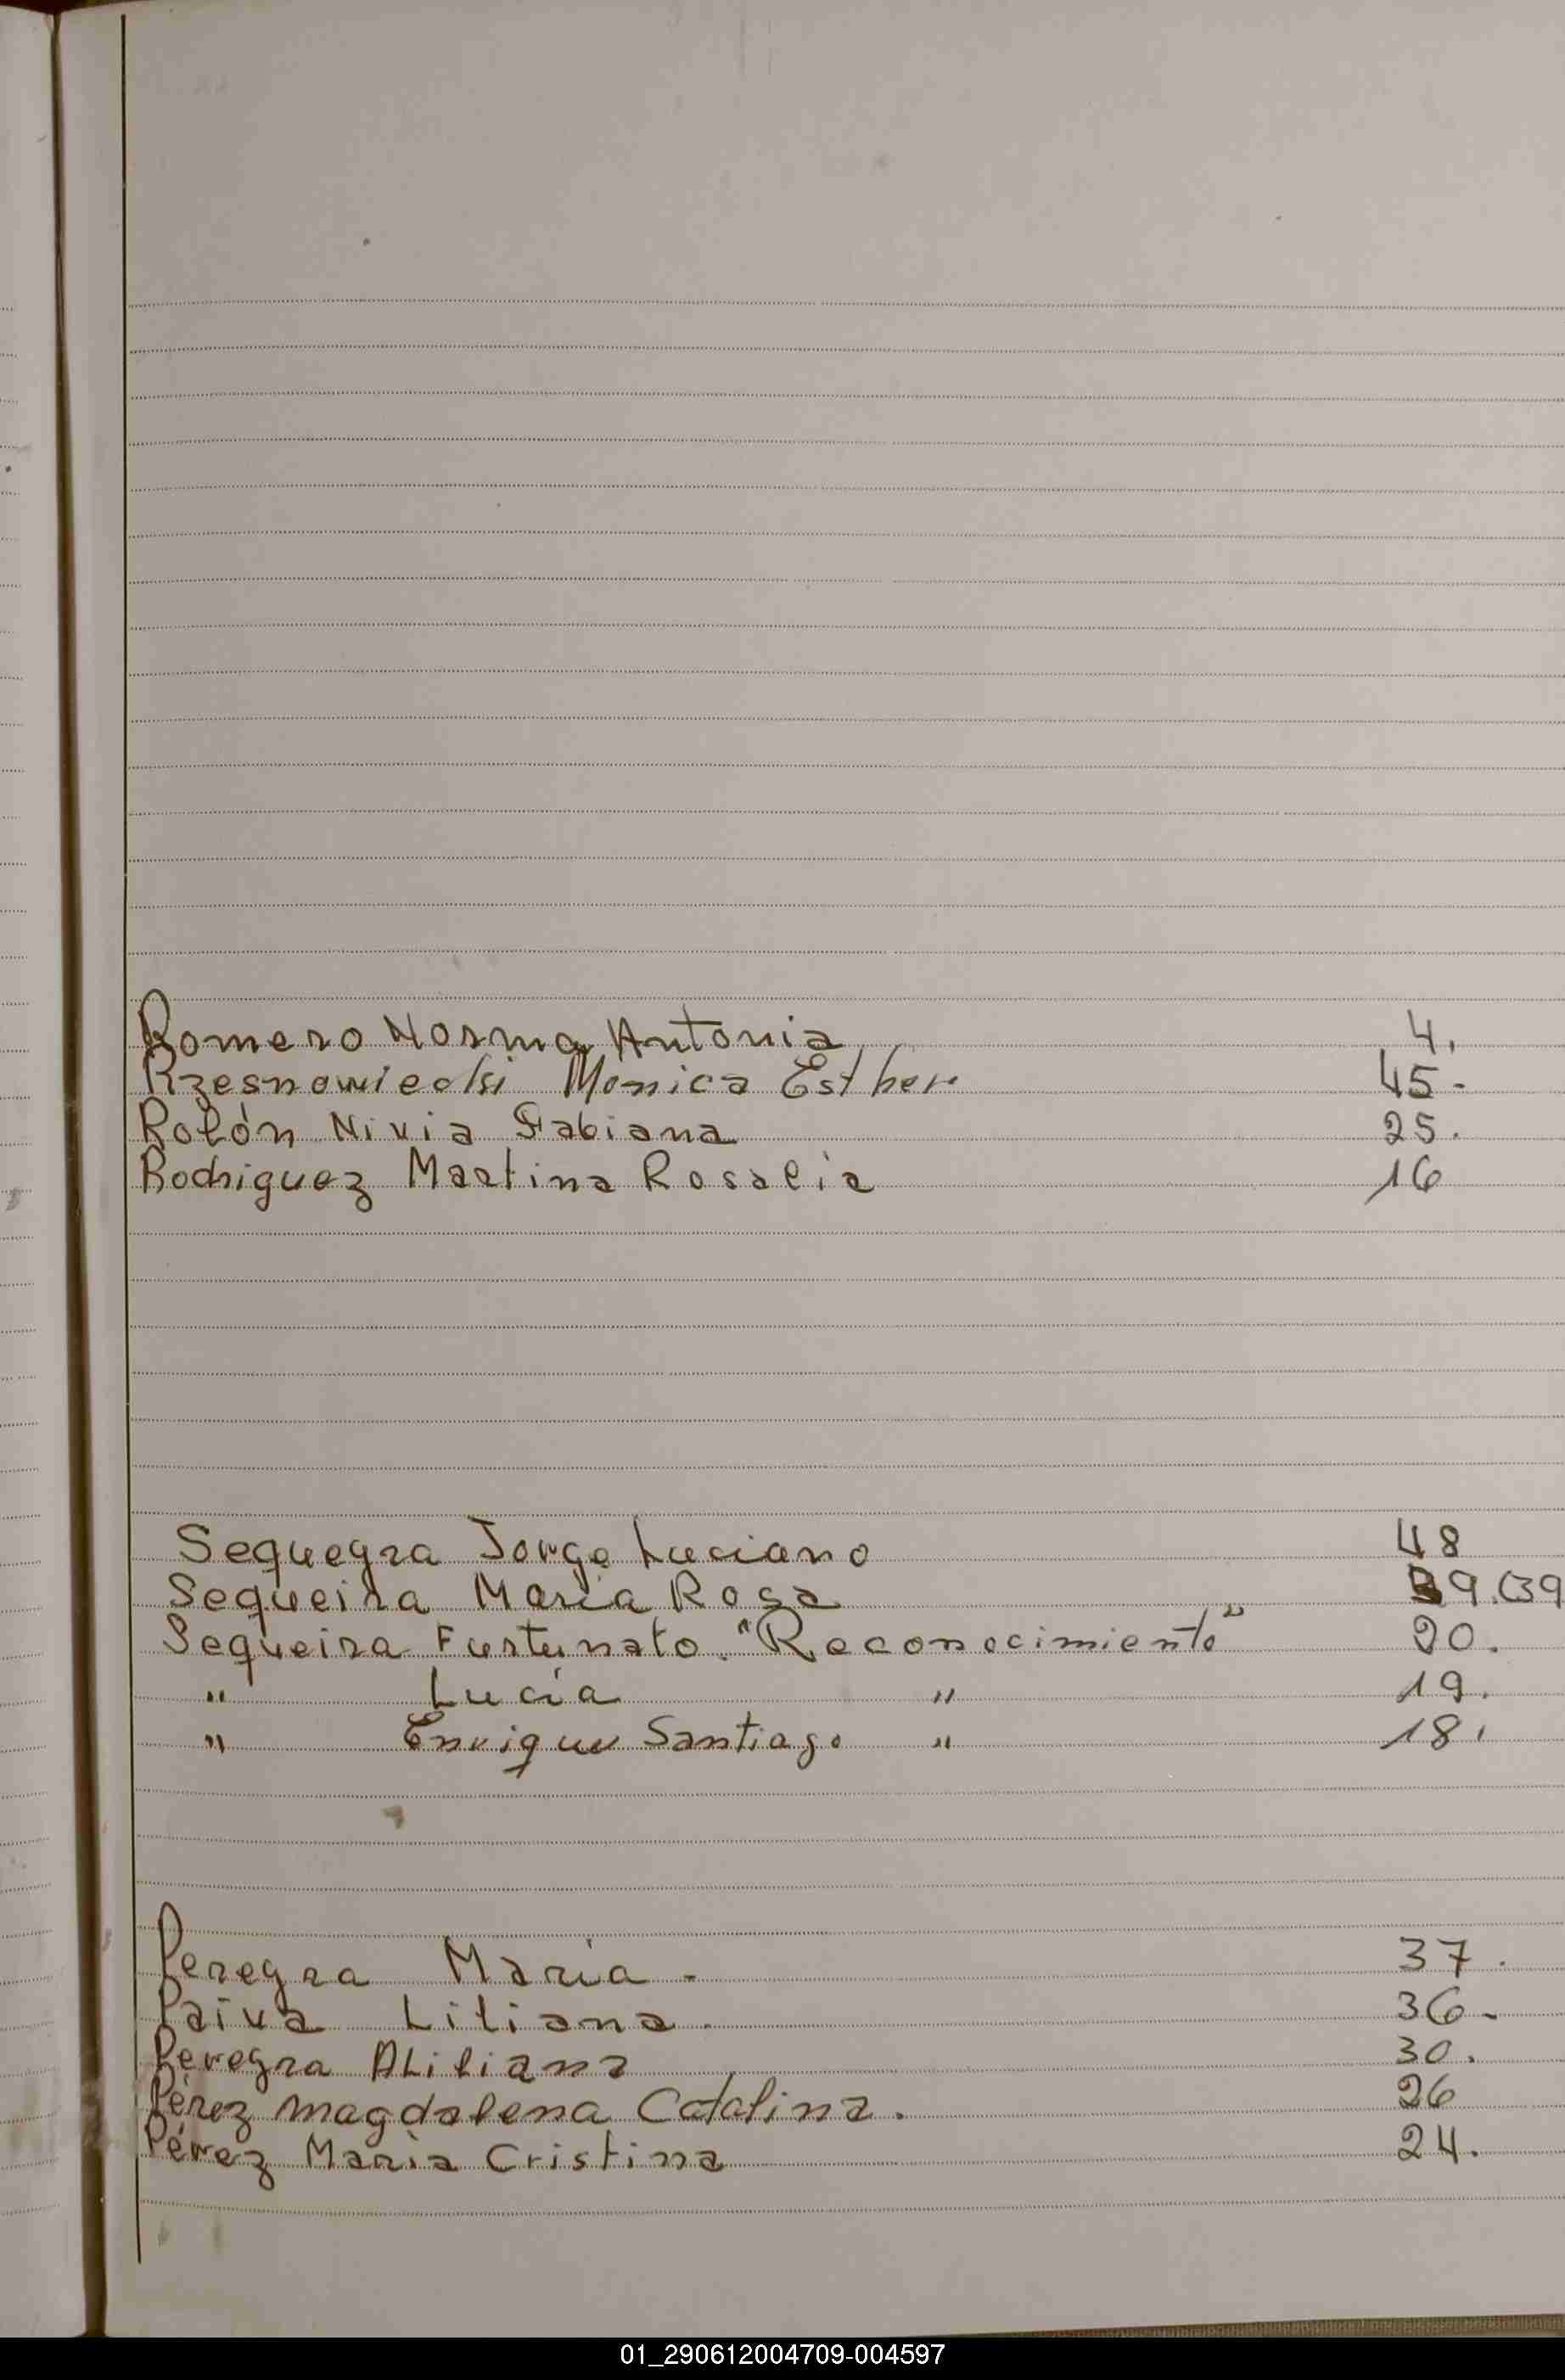 Romero Norma Antonia 4.
Rzesnowiecki Monica Esther 45-
Rolón Nivia Fabiana 25.
Rodriguez Martina Rosalia 16
Sequegra Jorge Luciano 48
Sequeira Maria Rosa 39.(39
Sequeira Furtunato. "Reconocimiento" 20.
" Lucia " 19.
" Enrique Santiago " 18.
Peregra Maria - 37.
Paiva Liliana. 36-
Peregra ALiliana 30.
Pérez magdalena Catalina. 26
Pérez Maria Cristina 24.
01_290612004709-004597